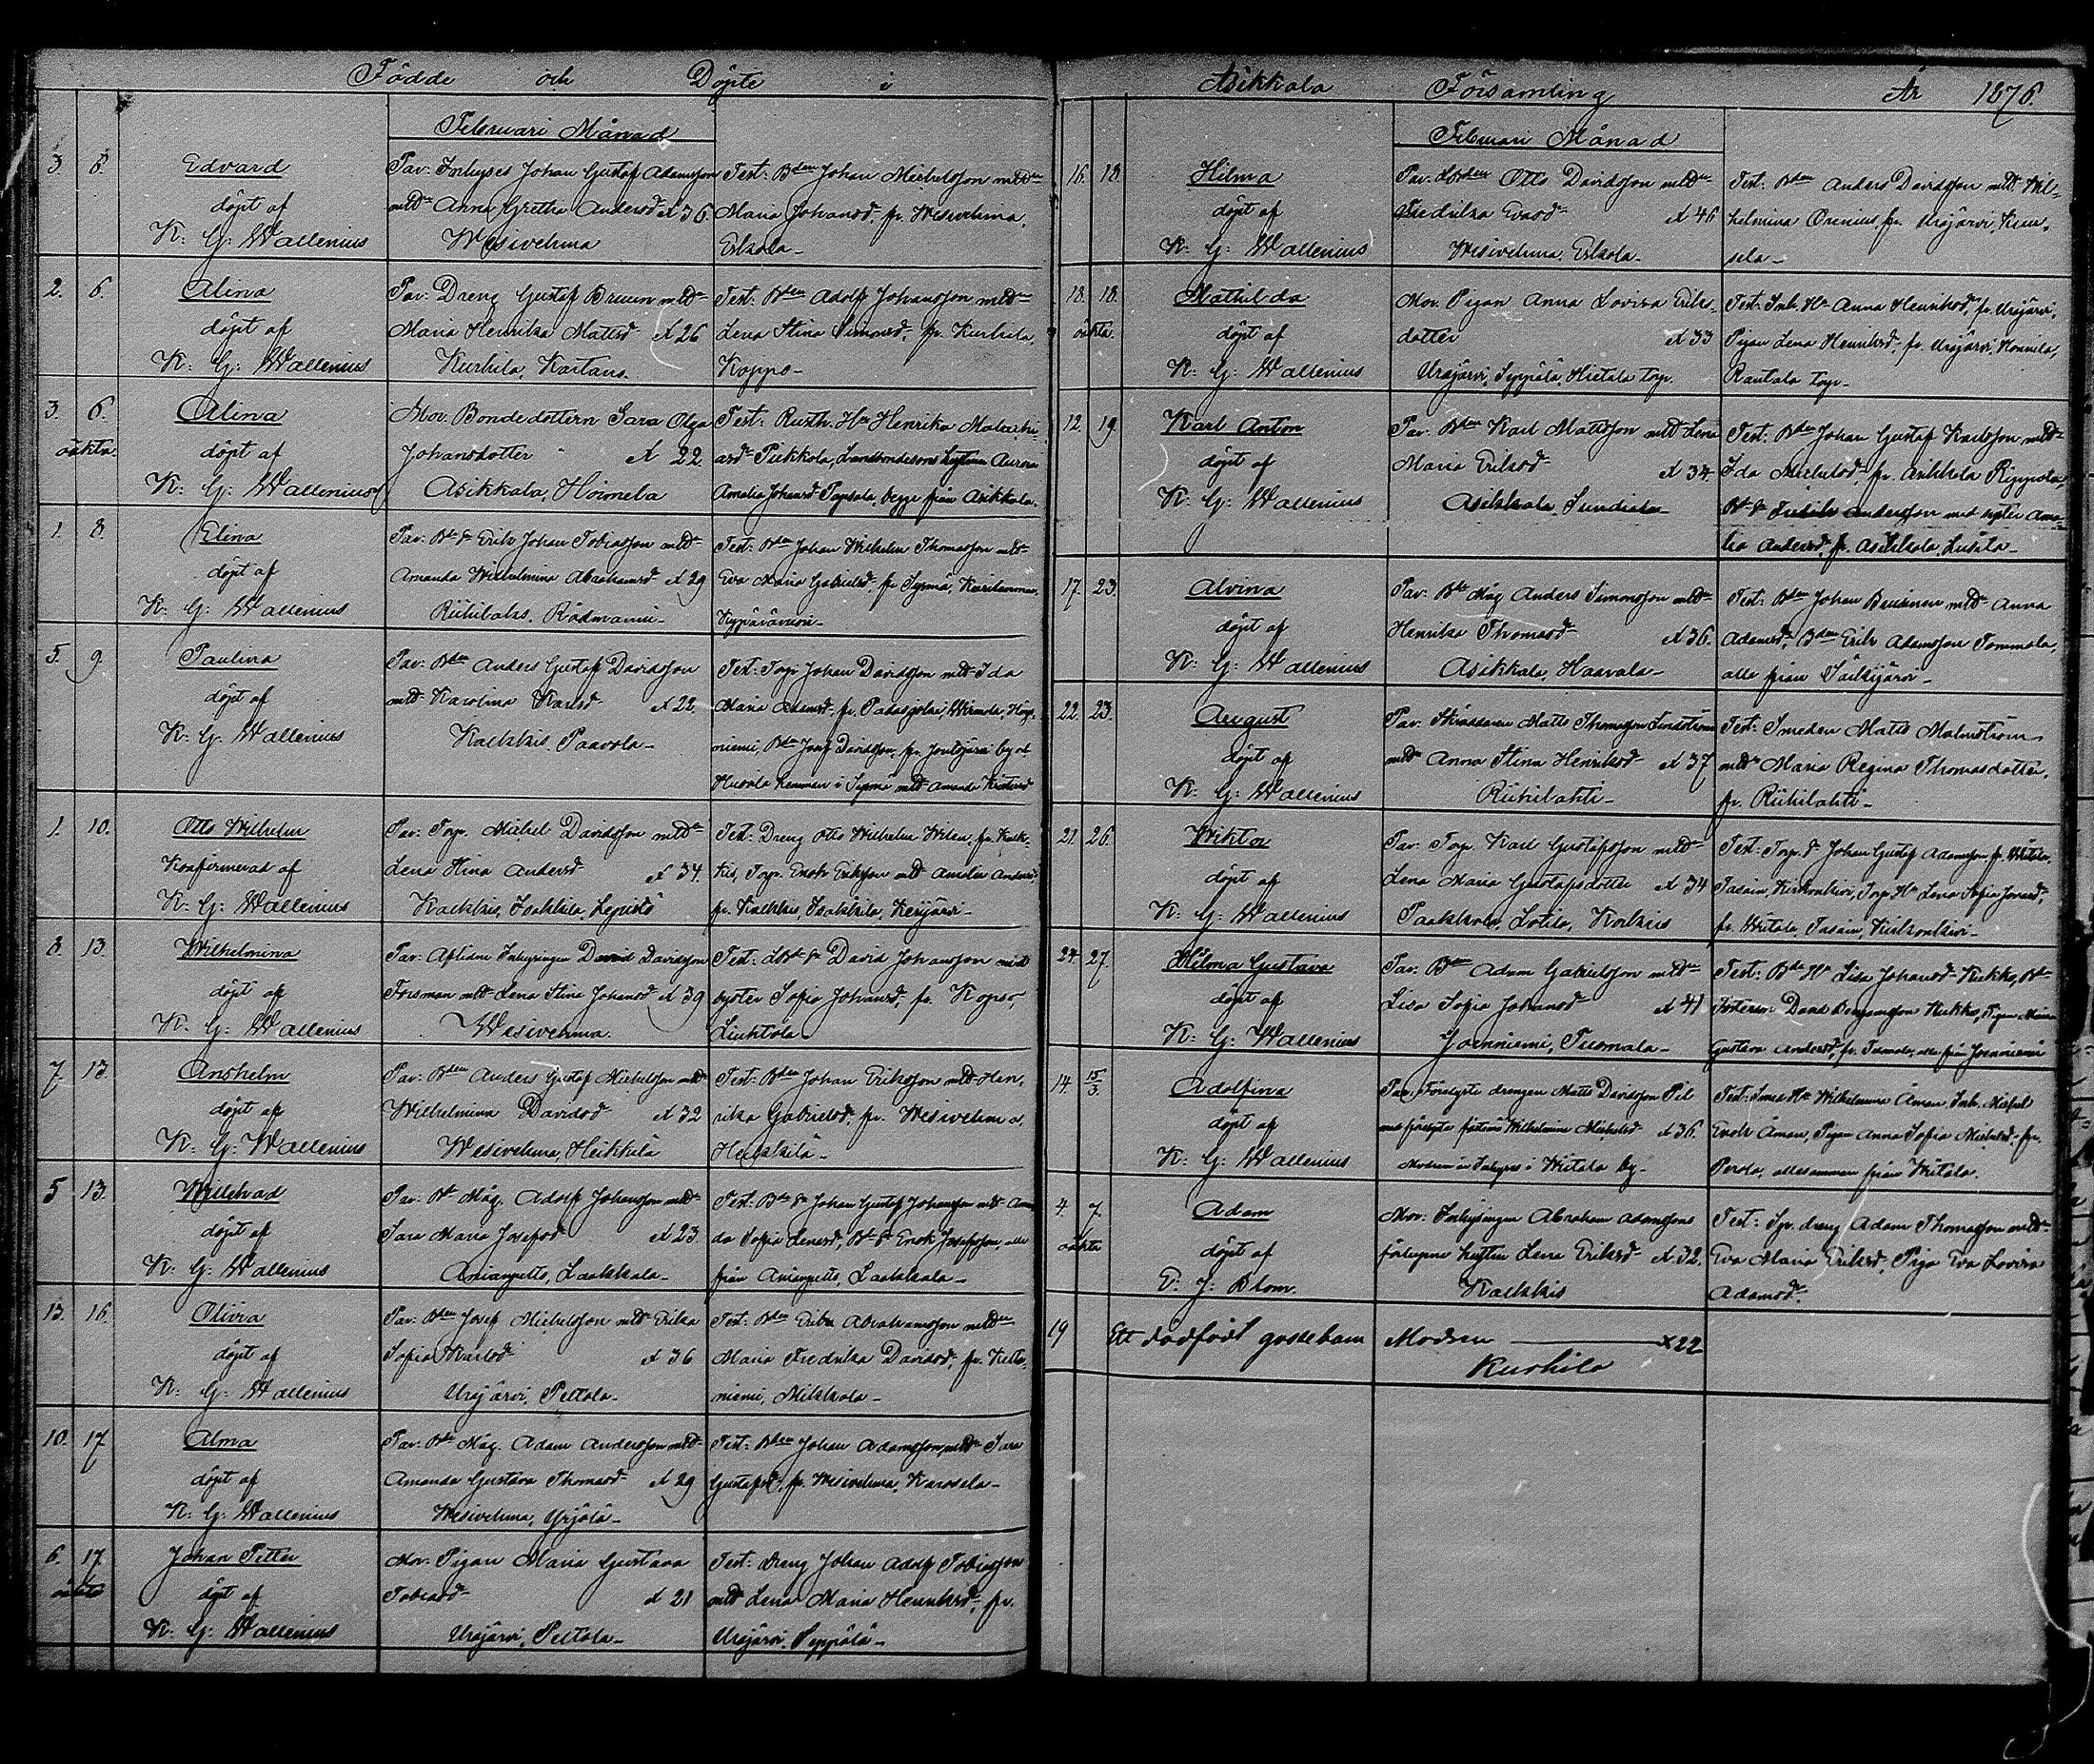 Födde och Döpte i Asikkala Församling År 1876.
Februari Månad
3. 8. Edvard
döpt af
K: G: Wallenius
Par: Inhyses Johan Gustaf Adamsson
mld Anna Gretha Andersd. Å 36.
Wesivehma
Test: Bden Johan Michelsson mld
Maria Johansd. fr. Wesivehma,
Erkola
2. 6. Alina
döpt af
K: G: Wallenius
Par: Dreng Gustaf Bruun mld
Maria Henrika Mattsd Å 26
Kurhila, Kartans.
Test: Bden Adolf Johansson mld
Lena Stina Simonsd. fr. Kurhila,
Koppo
3. 6. Alina
oäkta.
döpt af
K: G: Wallenius
Mor: Bondedottern Sara Olga
Johansdotter Å 22.
Asikkala, Hoimela
Test: Rusth. Hu Henrika Malachi-
asd Pukkola, Landbondesons hustrun Aurora
Amalia Johansd Papsola, begge från Asikkala.
1. 8. Elina
döpt af
K: G: Wallenius
Par: Bde S. Erik Johan Tobiasson mld
Amanda Wilhelmina Abrahamsd Å 29
Riihilaks, Rådmanni
Test: Bden Johan Wilhelm Thomasson mld
Eva Maria Gabrielsd. fr Sysmä,
5. 9. Paulina
döpt af
K: G: Wallenius
Par: Bden Anders Gustaf Davidsson
mld Karolina Karlsd Å 22.
Kalkkis, Paavola
Test: Torp. Johan Davidsson mld Ida
Maria Adamsd. fr. Padasjoki,
niemi, Bden Josef Davidsson, fr. Joutsjärvi by
hemman i Sysmä mld Amanda
1. 10. Otto Wilhelm
Konfirmerad af
K: G: Wallenius
Par: Torp. Michel Davidsson mld
Lena Stina Andersd Å 34.
Kalkkis, Isakkila, Lepistö
Test: Dreng Otto Wilhelm Wilen, fr. Kalk-
kis, Torp. Enok Eriksson mld Amalia Andersd,
fr. Kalkkis, Isakkila, Kesijärvi
8. 13. Wilhelmina
döpt af
K: G: Wallenius
Par: Aflidne Inhysingen David Davidsson
Forsman mld Lena Stina Johansd Å 39
Wesivehma.
Test: Bde S. David Johansson med
syster Sofia Johansd. fr. Kopso,
Liuktola
7. 13. Anshelm
döpt af
K: G: Wallenius
Par: Bden Anders Gustaf Michelsson mld
Wilhelmina Davidsd Å 32
Wesivehma, Heikkilä
Test: Bden Johan Eriksson mld Hen-
rika Gabrielsd. fr. Wesivehma,
Heikkilä
5 13. Willehad
döpt af
K: G: Wallenius
Par: Bde Måg. Adolf Johansson mld
Sara Maria Josefsd Å 23
Anianpelto, Laakkala
Test: Bde S. Johan Gustaf Johansson mld Aman-
da Sofia Lenasd, Bde S. Enok Josefsson, alla
från Anianpelto, Laakkala
13. 16. Olivia
döpt af
K: G: Wallenius
Par: Bden Josef Michelsson mld Erika
Sofia Karlsd Å 36
Urajärvi, Peltola
Test: Bden Erik Abrahamsson mld
Maria Fredrika Davidsd. fr. Kello-
niemi, Mikkola
10. 17. Alma
döpt af
K: G: Wallenius
Par: Bde Måg. Adam Andersson mld
Amanda Gustava Thomasd Å 29
Wesivehma, Yrjölä
Test: Bden Johan Adamsson mld Sara
Gustafsd. fr. Wesivehma, Karosela
6. 17. Johan Petter
oäkta
döpt af
K: G: Wallenius
Mor: Pigan Maria Gustava
Tobiasd Å 21
Urajärvi, Peltola
Test: Dreng Johan Adolf Tobiasson
mld Lena Maria Henriksd, fr.
Urajärvi, Seppälä
Februari Månad
16. 18. Hilma
döpt af
K: G: Wallenius
Par: Otto Davidsson mld
Fredrika Evasd Å 46
Wesivehma, Erkola
Test: Bden Anders Davidsson mld Wil-
helmina Orenius, fr. Urajärvi,
sela
18. 18. Mathilda
oäkta.
döpt af
K: G: Wallenius
Mor: Pigan Anna Lovisa Eriks-
dotter Å 33
Urajärvi, Seppälä, Hietala torp.
Test: Inh. Hu Anna Henriksd, fr. Urajärvi,
Pigan Lena Henriksd, fr. Urajärvi, Honnila,
Rantala torp
12. 19. Karl Anton
döpt af
K: G: Wallenius
Par: Bden Karl Mattsson mld Lena
Maria Eriksd Å 34.
Asikkala, Sundiala
Test: Bden Johan Gustaf Karlsson mld
Ida Michelsd. fr. Asikkala Riippola,
Bde S. Fredrik Andersson med syster Ama-
lia Andersd. fr. Asikkala, Lusila
17. 23. Alvina
döpt af
K: G: Wallenius
Par: Bde Måg Anders Simonsson mld
Henrika Thomasd Å 36.
Asikkala, Haavala
Test: Bden Johan Bruunen mld Anna
Adamsd, Bden Erik Adamsson Tommola,
alla från Särkijärvi
22. 23. August
döpt af
K: G: Wallenius
Par: Skräddaren Matts Thomasson Lindström
mld Anna Stina Henriksd Å 37
Riihilahti
Test: Smeden Matts Malmström
mld Maria Regina Thomasdotter,
fr. Riihilahti
21. 26. Wiktor
döpt af
K: G: Wallenius
Par: Torp. Karl Gustafsson mld
Lena Maria Gustafsdotter Å 34
Paakkola, Lotila, Kalkkis
Test: Torp. S. Johan Gustaf Adamsson fr. Viitala,
Pasain, Kirkonkivi, Torp. Hu Lena Sofia Jonasd,
fr. Viitala, Pasain, Kirkonkivi
24. 27. Hilma Gustava
döpt af
K: G: Wallenius
Par: Bden Adam Gabrielsson mld
Lisa Sofia Johansd Å 41
Joenniemi, Tuomala
Test: Bde Hu Lisa Johansd Kukko, Bde
David Benjamsson Kukko, Pigan Maria
Gustava Andersd. fr. Tuomala, alla från Joenniemi
14. 15/3. Adolfina
döpt af
K: G: Wallenius
Par: Förelyste drengen Matts Davidsson Pil
med förelysta fästmö Wilhelmina Michelsd. Å 36.
Modren är Inhyses i Viitala by
Test: Smed Hu Wilhelmina Åman, Inh. Michel
Enok Åman, Pigan Anna Sofia Michelsd. fr.
Perola, allesamman från Viitala.
4. 7. Adam
oäkta
döpt af
E: J: Blom.
Mor: Inhysingen Abraham Adamssons
förlupna hustru Lena Eriksd Å 32.
Kalkkis
Test: Spr. dreng Adam Thomasson mld
Eva Maria Eriksd, Piga Eva Lovisa
Adamsd.
19 Ett dödfödt gossebarn Modren Å 22
Kurhila